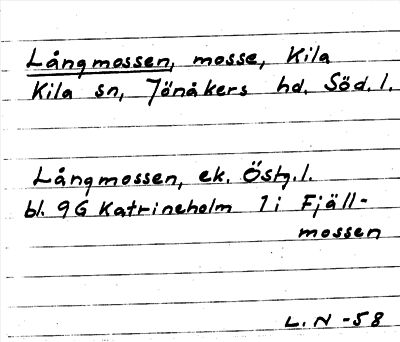 Långmossen, mosse, Kila
Kila sn, Jönåkers hd, Söd. l.
Långmossen, ek. Östg. l.
bl. 9G Katrineholm 1 i Fjäll-
mossen
L. N -58